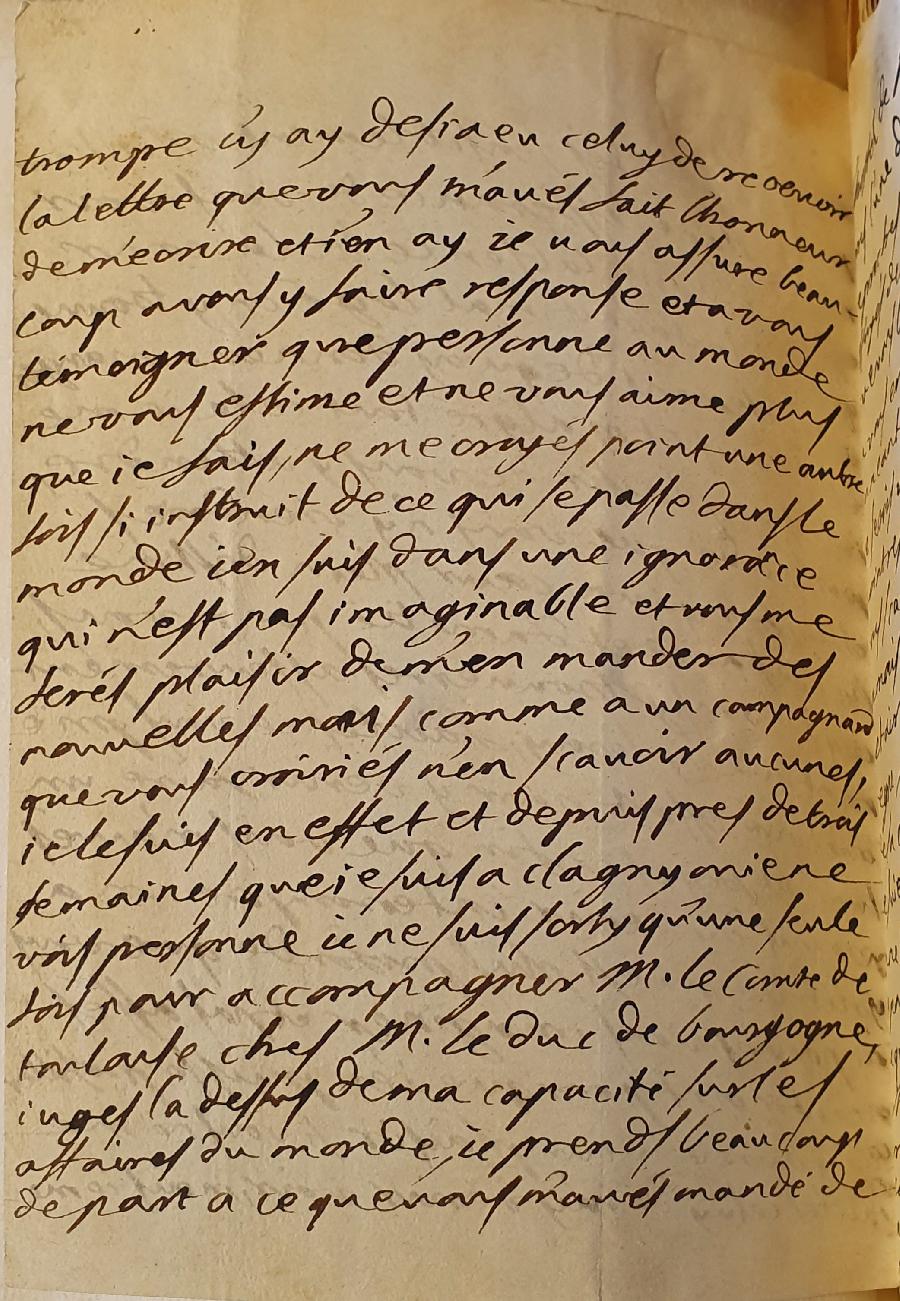 trompe i'y ay desia eu celuy de recevoir
la lettre que vous m'aués fait lhonneur
de m'ecrire et i'en ay ie vous assure beau-
coup a vous y faire response et a vous
témoigner que personne au monde
ne vous estime et ne vous aime plus
que ie fais, ne me croyés point une autre
fois si instruit de ce qui se passe dans le
monde ien suis dans une ignorance
qui n'est pas imaginable et vous me
ferés plaisir de m'en mander des
nouvelles mais comme a un campagnard
que vous croiriés n'en scauoir aucunes,
ie le suis en effet et depuis pres de trois
semaines que ie suis a clagny ou ie ne
vois personne ie ne suis sorty qu'une seule
fois pour accompagner M. le Comte de
toulouse ches M. le duc de bourgogne,
iuges la dessus de ma capacité sur les
affaires du monde, ie prends beaucoup
de part a ce que vous m'aués mandé de